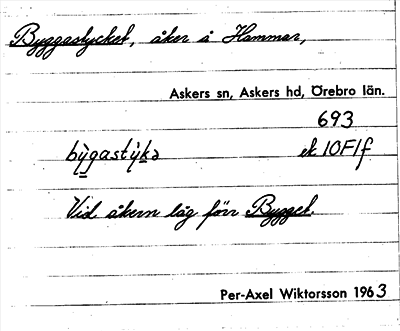 Byggastycket, åker å Hammar,
Askers sn, Askers hd, Örebro län.
693
bỳgastỳkə ek 10F1f
Vid åkern låg förr Bygget.
Per-Axel Wiktorsson 1963